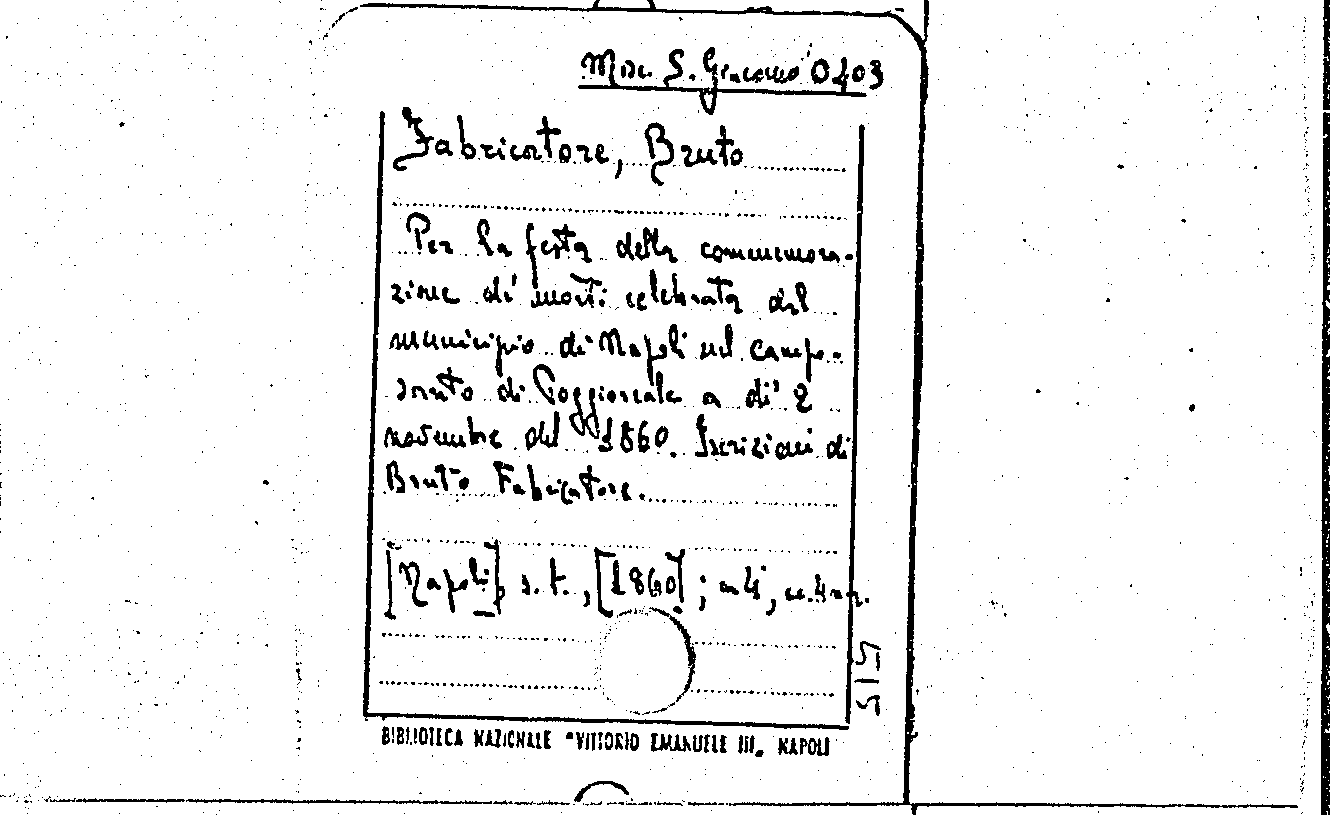 Misc. S. Giacomo 0403
Fabricatore, Bruto
Per la festa della commemora-
zione di morti celebrata dal
municipio di Napoli nel campo-
santo di Poggioreale a dì 2
novembre del 1860. Iscrizioni di
Bruto Fabricatore.
[Napoli], s.t., [1860]; in 4°, cc. 4 n.n.
515
BIBLIOTECA NAZIONALE "VITTORIO EMANUELE III„ NAPOLI